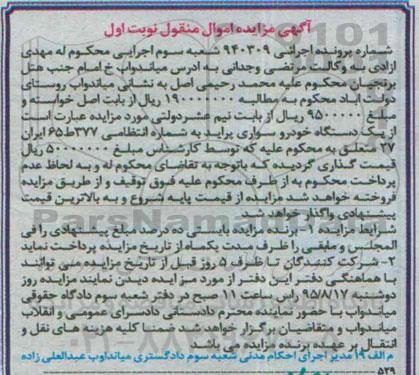 آگهی مزایده اموال منقول نوبت اول
شماره پرونده اجرائی ۹۴۰۳۰۹ شعبه سوم اجرایی محکوم له مهدی
ازادی به وکالت مرتضی وجدانی به ادرس میاندواب خ امام جنب هتل
برنجیان محکوم علیه محمد رحیمی اصل به نشانی میاندواب روستای
دولت اباد محکوم به مطالبه ۱۹۰۰۰۰۰۰۰ ریال از بابت اصل خواسته و
مبلغ ۹۵۰۰۰۰۰ ریال از بابت نیم عشر دولتی مورد مزایده عبارت است
از یک دستگاه خودرو سواری پراید به شماره انتظامی ۳۷۷ط۶۵ ایران
۲۷ متعلق به محکوم علیه که توسط کارشناس مبلغ ۵۰۰۰۰۰۰۰ ریال
قیمت گذاری گردیده که باتوجه به تقاضای محکوم له و به لحاظ عدم
پرداخت محکوم به از طرف محکوم علیه فوق توقیف و از طریق مزایده
فروخته خواهد شد مزایده از قیمت پایه شروع و به بالاترین قیمت
پیشنهادی واگذار خواهد شد
شرایط مزایده ۱-برنده مزایده بایستی ده درصد مبلغ پیشنهادی را فی
المجلس و مابقی را ظرف مدت یکماه از تاریخ مزایده پرداخت نماید
۲-شرکت کنندگان تا ظرف ۵ روز قبل از تاریخ مزایده می توانند
با هماهنگی دفتر این دفتر از مورد مزایده دیدن نمایند مزایده روز
دوشنبه ۹۵/۸/۱۷ راس ساعت ۱۱ صبح در دفتر شعبه سوم دادگاه حقوقی
میاندواب با حضور نماینده محترم دادستانی دادسرای عمومی و انقلاب
میاندواب و متقاضیان برگزار خواهد شد ضمنا کلیه هزینه های نقل و
انتقال بر عهده برنده مزایده می باشد
م الف ۱۹ مدیر اجرای احکام مدنی شعبه سوم دادگستری میاندواب عبدالعلی زاده
۵۲۹